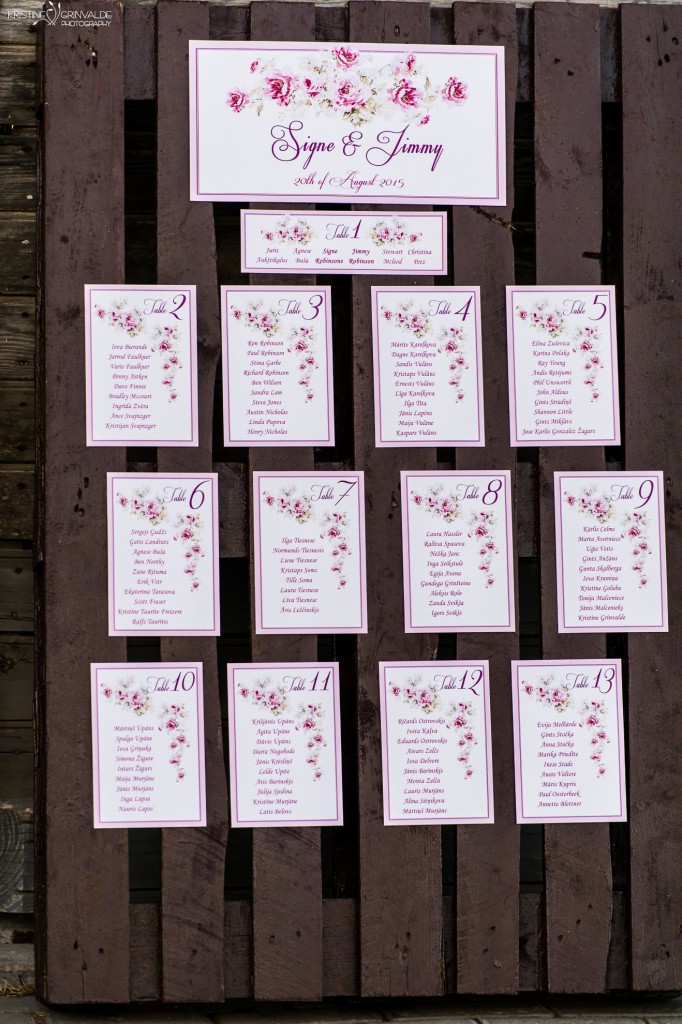 KRISTINE GRINVALDE
PHOTOGRAPHY
Signe & Jimmy
20th of August 2015
Table 1
Juris Agnese Signe Jimmy Stewart Christina
Auktikalns Bula Robinsone Robinson Mcleod Petz
Table 2
Ieva Bierande
Jarrod Faulkner
Varis Faulkner
Penny Aitken
Dave Finnie
Bradley Mccourt
Ingrida Zvira
Ance Svajnzger
Kristijan Svajnzger
Table 3
Ron Robinson
Paul Robinson
Stina Garbe
Richard Robinson
Ben Wilson
Sandra Lam
Steve Jones
Austin Nicholas
Linda Pupova
Henry Nicholas
Table 4
Mārite Kareļkova
Dagne Kareļkova
Sandis Vulāns
Kristaps Vulāns
Ernests Vulāns
Līga Kareļkova
Ilga Tīta
Jānis Lapēns
Maija Vulāne
Kaspars Vulāns
Table 5
Elīna Zušēvica
Karīna Polaka
Ray Young
Andis Rotējums
Phil Unsworth
John Aldous
Gints Stradiņš
Shannon Little
Gints Mikļāvs
Jose Karlis Gonzalez Žagars
Table 6
Sergejs Gudžs
Gatis Landrats
Agnese Bula
Ben Northy
Zane Rituma
Erik Vitr
Ekaterina Tarasova
Scott Fraser
Kristine Taurite Frenzere
Ralfs Tauritis
Table 7
Ilga Tiesnese
Normunds Tiesnesis
Liene Tiesnese
Kristaps Soms
Tille Soma
Laura Tiesnese
Līva Tiesnese
Aris Leščinskis
Table 8
Laura Hassler
Ralitsa Spaseva
Nežka Jenc
Inga Seikstule
Egija Avena
Gundega Grinšteine
Aleksis Rolo
Zanda Svikša
Igors Svikšs
Table 9
Kārlis Celms
Marta Asotniece
Uģis Veits
Gints Anžāns
Gunta Skalberga
Ieva Kramiņa
Kristine Goluba
Tonija Malceniece
Jānis Malcenieks
Kristine Grinvalde
Table 10
Mārtiņš Upāns
Spulga Upāne
Ieva Griņuka
Simona Žīgure
Intars Žīgurs
Maija Murjāne
Jānis Murjāns
Inga Lapsa
Nauris Lapss
Table 11
Krišjānis Upāns
Agita Upāne
Dāvis Upāns
Daira Nagobode
Jānis Krēsliņš
Lelde Upīte
Atis Barinskis
Jūlija Spedina
Kristine Murjāne
Latis Belovs
Table 12
Ričards Ostrovskis
Iveta Kalva
Eduards Ostrovskis
Aivars Zelčs
Ieva Delvere
Jānis Barinskis
Monta Zelča
Lauris Murjāns
Alina Sitņikova
Mārtiņš Murjāns
Table 13
Evija Melbārde
Gints Stočka
Anna Stočka
Marika Pruedīte
Inese Stade
Anete Valiere
Māris Kupris
Paul Oosterbeek
Annette Blettner